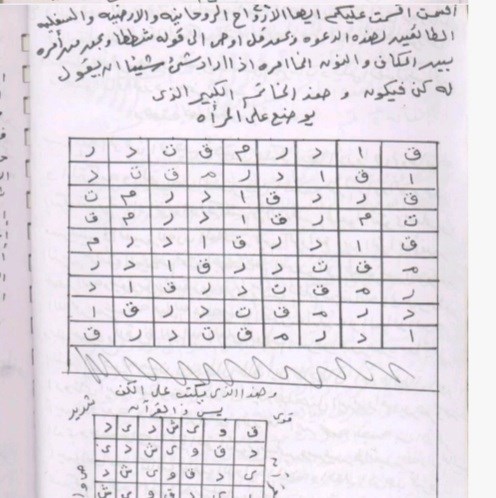 اقسمت اقسمت عليكم ايها الأرواح الروحانيه والارضيه والسفليه
الطائعين لهذه الدعوه وبحق قل اوحى الى قوله شططا وبحق من أمره
بين الكاف والنون انما امره اذا اراد شئ شيئا ان يقول
له كن فيكون وهذا الخاتم الكبير الذى
يوضع على المرأه
ق ا د ر م ق ت د ر
ا ق ا د ر م ق ت د
ق ر د ق ا د ر م ت
ت م ر ق ا د ر م ق
ق ا د ر ق ا د ر م
م ق ت د ر ق ا د ر
ر م ق ت د ر ق ا د
د ر م ق ت د ر ق ا
ا د ر م ق ت د ر ق
وهذا الذى يكتب على الكف
يس والقرآن
قوى
شديد
ق و ى ش د ى د
د ق و ى ش د ى
ى د ق و ى ش د